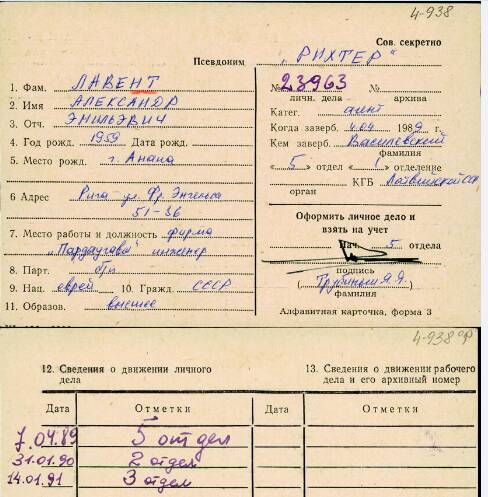 4-938
Сов. секретно
Псевдоним „РИХТЕР"
1. Фам. ЛАВЕНТ
2. Имя АЛЕКСАНДР
3. Отч. ЭМИЛЬЕВИЧ
4. Год рожд. 1959 Дата рожд.
5. Место рожд. г. Анапа
6 Адрес Рига ул Фр. Энгельса
51-36
7. Место работы и должность фирма
„Пардаугава" инженер
8. Парт. б/п
9. Нац. еврей 10. Гражд. СССР
11. Образов. высшее
№ 23963 №
личн. дела архива
Катег. агент
Когда заверб. 4.04 1989 г.
Кем заверб. Василевский
фамилия
«5» отдел «1» отделение
КГБ Латвийской ССР
орган
Оформить личное дело и
взять на учет
Нач. 5 отдела
подпись
фамилия
Алфавитная карточка, форма 3
4-938 ор
12. Сведения о движении личного
дела
13. Сведения о движении рабочего
дела и его архивный номер
Дата Отметки Дата Отметки
7.04.89 5 отдел
31.01.90 2 отдел
14.01.91 3 отдел